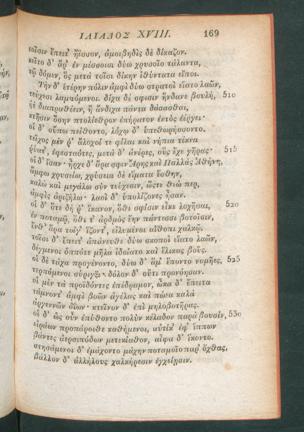 ΙΛΙΑΔΟΣ XVIII. 169
τοῖσιν ἔπειτ' ἤϊσσον, ἀμοιβηδὶς δὲ δίκαζον.
κεῖτο δ' ἄρ' ἐν μέσσοισι δύω χρυσοῖο τάλαντα,
τῷ δόμεν, ὃς μετὰ τοῖσι δίκην ἰθύντατα εἴποι.
Τὴν δ' ἑτέρην πόλιν ἀμφὶ δύο στρατοὶ εἵατο λαῶν,
τεύχεσι λαμπόμενοι. δίχα δέ σφισιν ἥνδανε βουλὴ, 510
ἠὲ διαπραθέειν, ἢ ἄνδιχα πάντα δάσασθαι,
κτῆσιν ὅσην πτολίεθρον ἐπήρατον ἐντὸς ἐέργει·
οἱ δ' οὔπω πείθοντο, λόχῳ δ' ὑπεθωρήσσοντο.
τεῖχος μέν ῥ' ἄλοχοί τε φίλαι καὶ νήπια τέκνα
ῥύατ', ἐφεσταότες, μετὰ δ' ἀνέρες, οὓς ἔχε γῆρας· 515
οἱ δ' ἴσαν· ἦρχε δ' ἄρα σφιν Ἄρης καὶ Παλλὰς Ἀθήνη,
ἄμφω χρυσείω, χρύσεια δὲ εἵματα ἕσθην,
καλὼ καὶ μεγάλω σὺν τεύχεσιν, ὥστε θεώ περ,
ἀμφὶς ἀριζήλω· λαοὶ δ' ὑπολίζονες ἦσαν.
οἱ δ' ὅτε δή ῥ' ἵκανον, ὅθι σφίσιν εἶκε λοχῆσαι, 520
ἐν ποταμῷ, ὅθι τ' ἀρδμὸς ἔην πάντεσσι βοτοῖσιν,
ἔνθ' ἄρα τοίγ' ἵζοντ', εἰλυμένοι αἴθοπι χαλκῷ.
τοῖσι δ' ἔπειτ' ἀπάνευθε δύω σκοποὶ εἵατο λαῶν,
δέγμενοι ὁππότε μῆλα ἰδοίατο καὶ ἕλικας βοῦς.
οἱ δὲ τάχα προγένοντο, δύω δ' ἅμ' ἕποντο νομῆες, 525
τερπόμενοι σύριγξι· δόλον δ' οὔτι προνόησαν.
οἱ μὲν τὰ προϊδόντες ἐπέδραμον, ὦκα δ' ἔπειτα
τάμνοντ' ἀμφὶ βοῶν ἀγέλας καὶ πώεα καλὰ
ἀργεννῶν ὀΐων· κτεῖνον δ' ἐπὶ μηλοβοτῆρας.
οἱ δ' ὡς οὖν ἐπύθοντο πολὺν κέλαδον παρὰ βουσὶν, 530
εἰράων προπάροιθε καθήμενοι, αὐτίκ' ἐφ' ἵππων
βάντες ἀερσιπόδων μετεκίαθον, αἶψα δ' ἵκοντο.
στησάμενοι δ' ἐμάχοντο μάχην ποταμοῖο παρ' ὄχθας,
βάλλον δ' ἀλλήλους χαλκήρεσιν ἐγχείῃσιν.